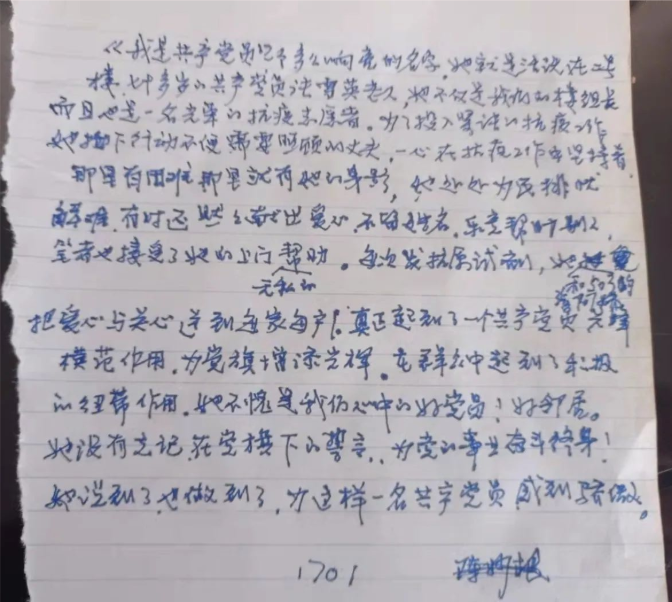 《我是共产党员》是多么响亮的名字,她就是活跃在二号
楼七十多岁的共产党员沈雪英老人,她不仅是我们的楼组长
而且也是一名光荣的抗疫志愿者。为了投入紧张的抗疫工作
她抛下行动不便需要照顾的丈夫,一心在抗疫工作中坚持着,
那里有困难那里就有她的身影,她处处为民排忧
解难,有时还默默献出爱心不留姓名,乐意帮助别人,
笔者也接受了她的上门帮助。每次发抗原试剂,她
无私的
和503的
把爱心与关心送到每家每户!真正起到了一个共产党员先锋
模范作用,为党旗增添光辉。在群众中起到了积极
的纽带作用,她不愧是我们心中的好党员!好邻居。
她没有忘记在党旗下的誓言,为党的事业奋斗终身!
她说到了也做到了,为这样一名共产党员感到骄傲。
1701